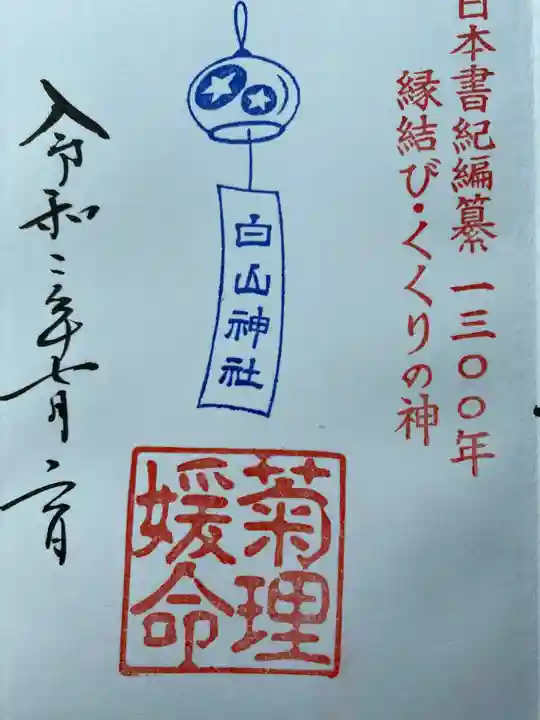 日本書紀編纂 一三〇〇年
縁結び・くくりの神
白山神社
菊理
媛命
令和二年七月二日